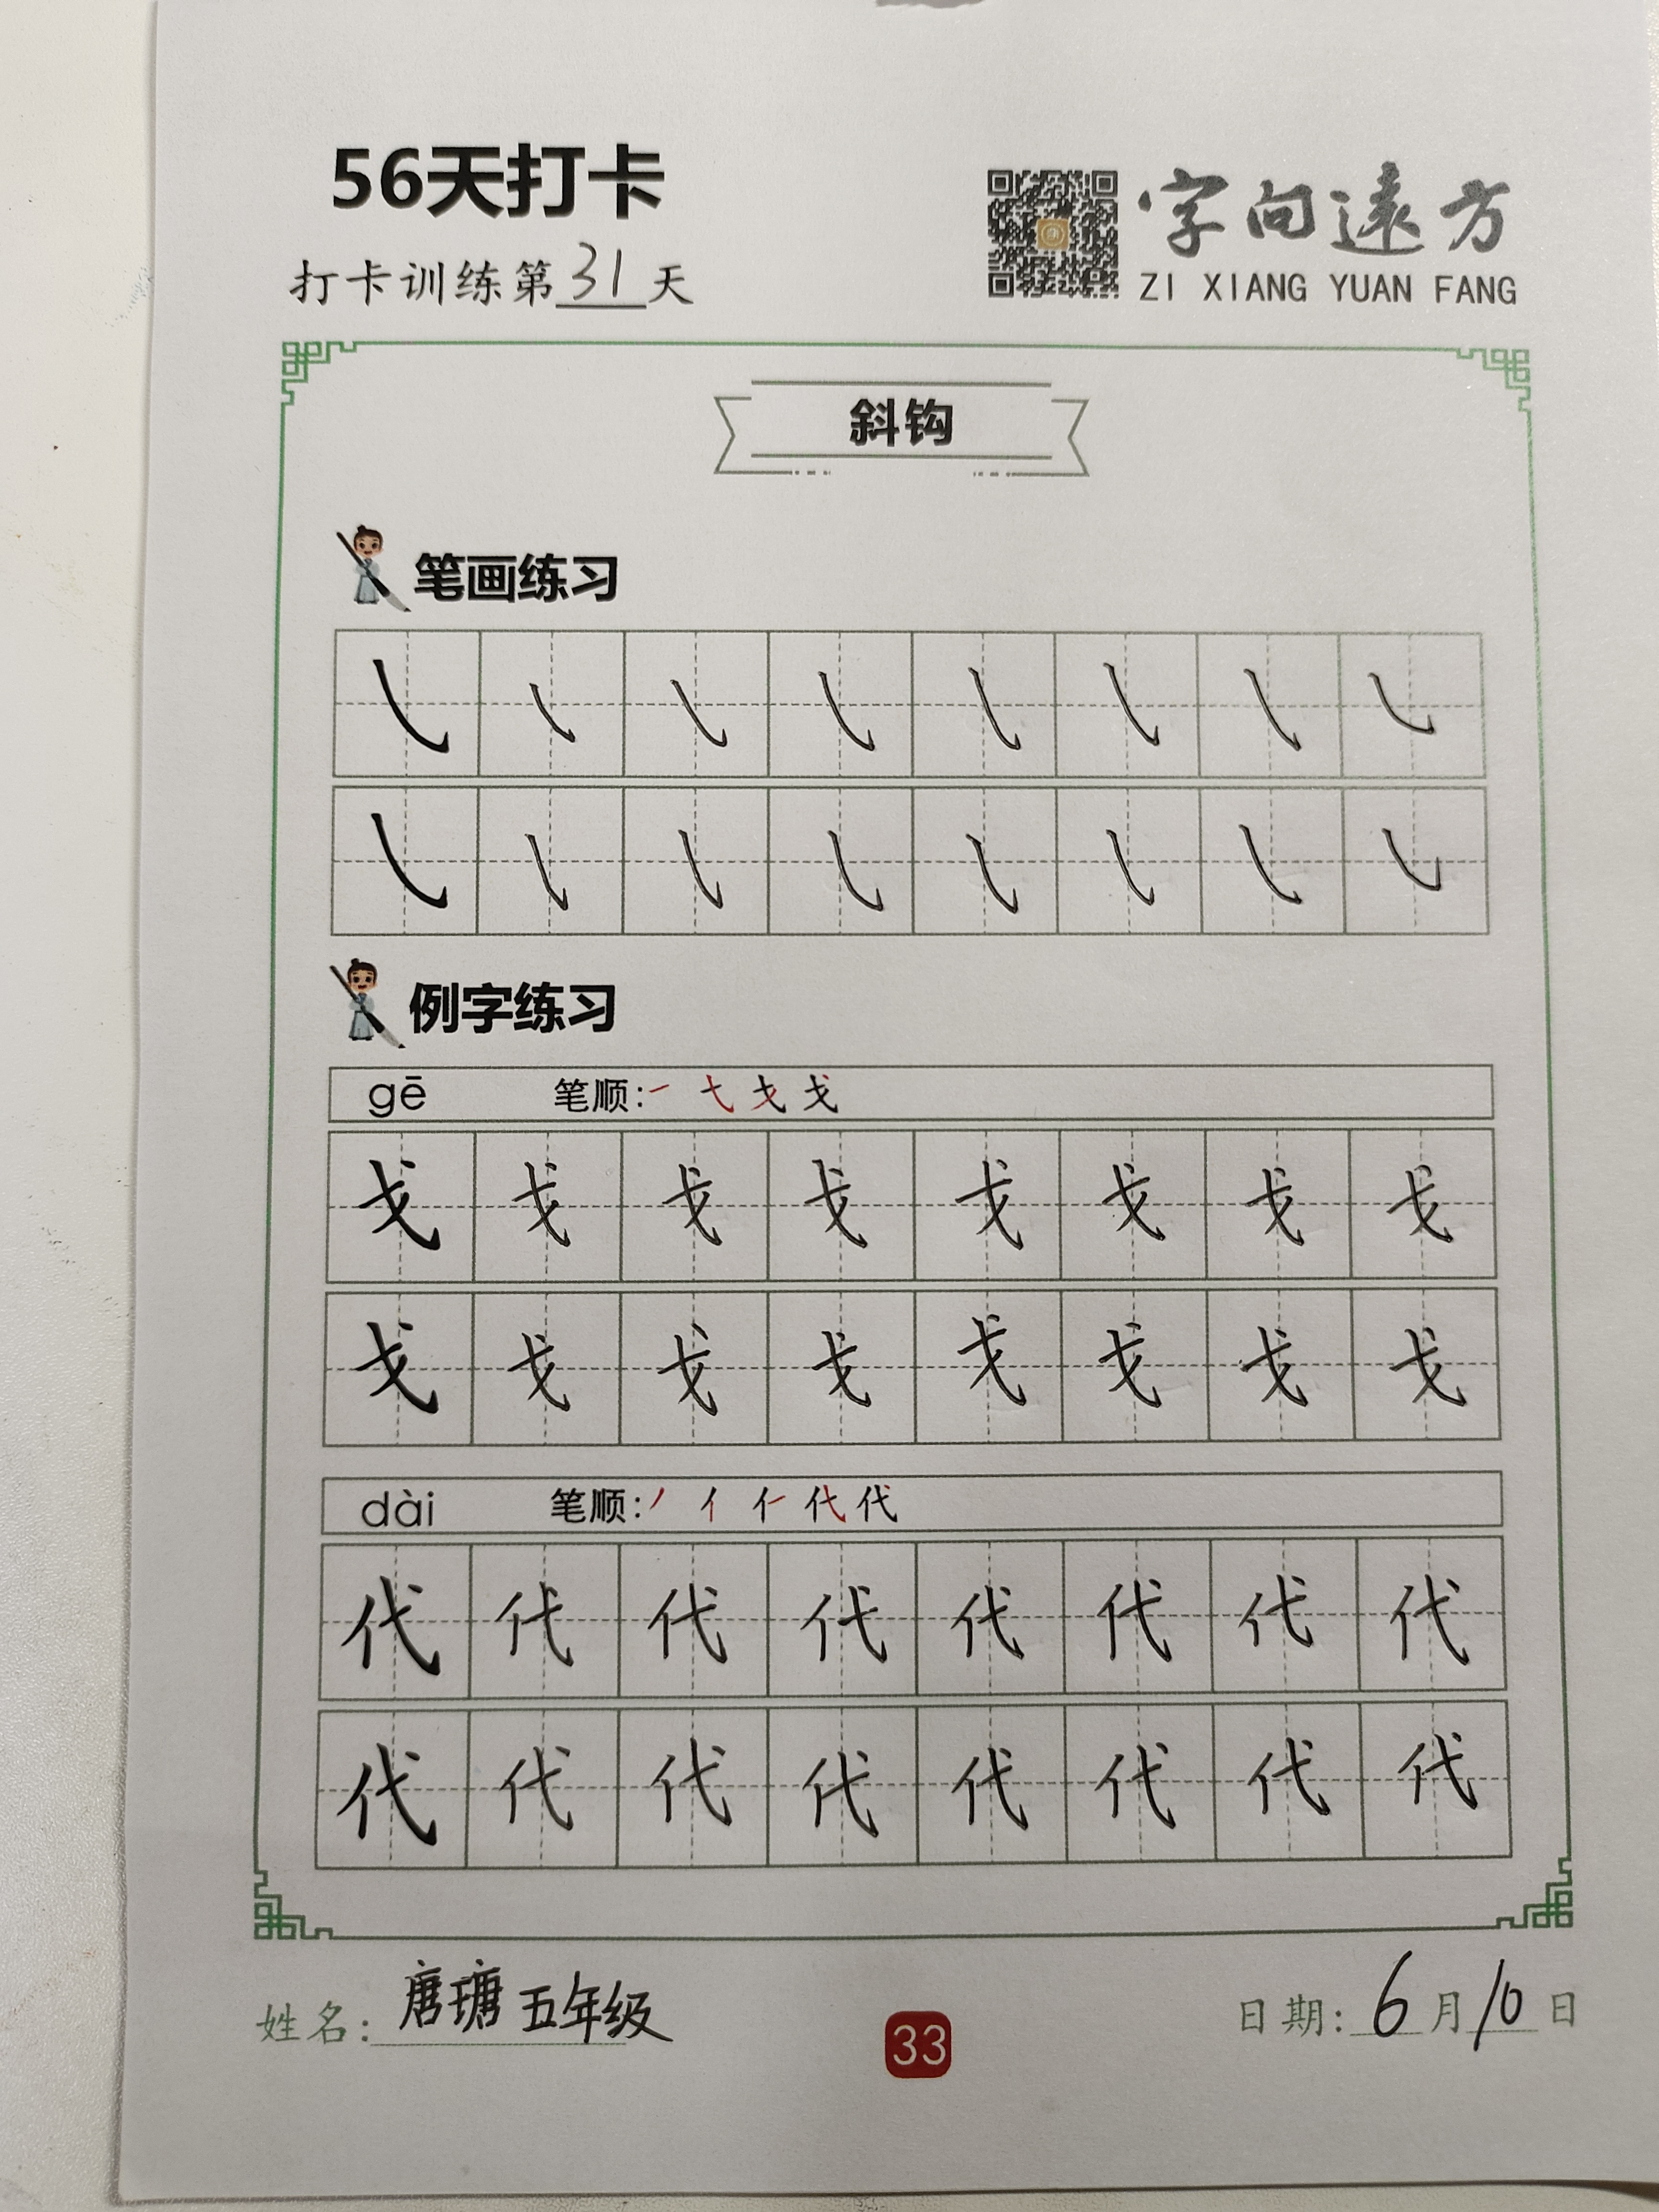 56天打卡
打卡训练第31天
字向遠方
ZI XIANG YUAN FANG
斜钩
笔画练习
㇂ ㇂ ㇂ ㇂ ㇂ ㇂ ㇂ ㇂
㇂ ㇂ ㇂ ㇂ ㇂ ㇂ ㇂ ㇂
例字练习
gē 笔顺:㇀ 弋 戈 戈
戈 戈 戈 戈 戈 戈 戈 戈
戈 戈 戈 戈 戈 戈 戈 戈
dài 笔顺:丿 亻 仁 代 代
代 代 代 代 代 代 代 代
代 代 代 代 代 代 代 代
姓名:唐瑭 五年级
33
日期:6月10日